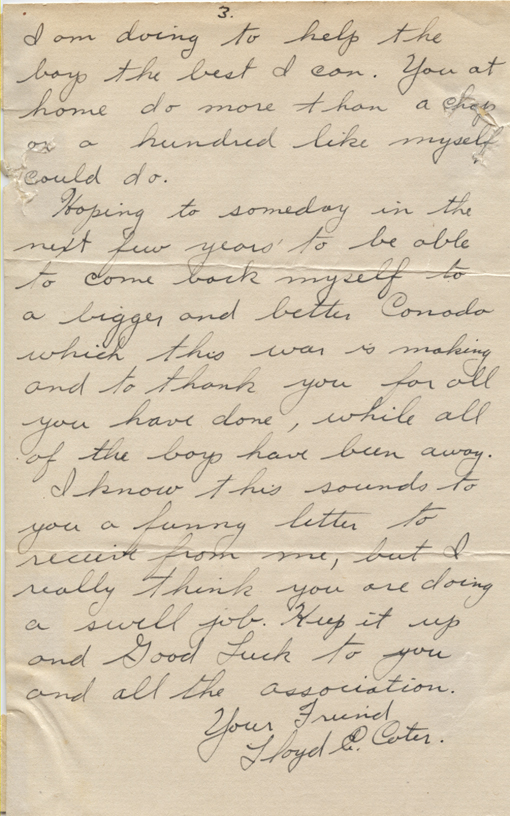 3.
I am doing to help the
boys the best I can. You at
home do more than a chap
or a hundred like myself
could do.
Hoping to someday in the
next few years' to be able
to come back myself to
a bigger and better Canada
which this war is making
and to thank you for all
you have done, while all
of the boys have been away.
I know this sounds to
you a funny letter to
receive from me, but I
really think you are doing
a swell job. Keep it up
and Good Luck to you
and all the association.
Your Friend
Lloyd E. Cater.